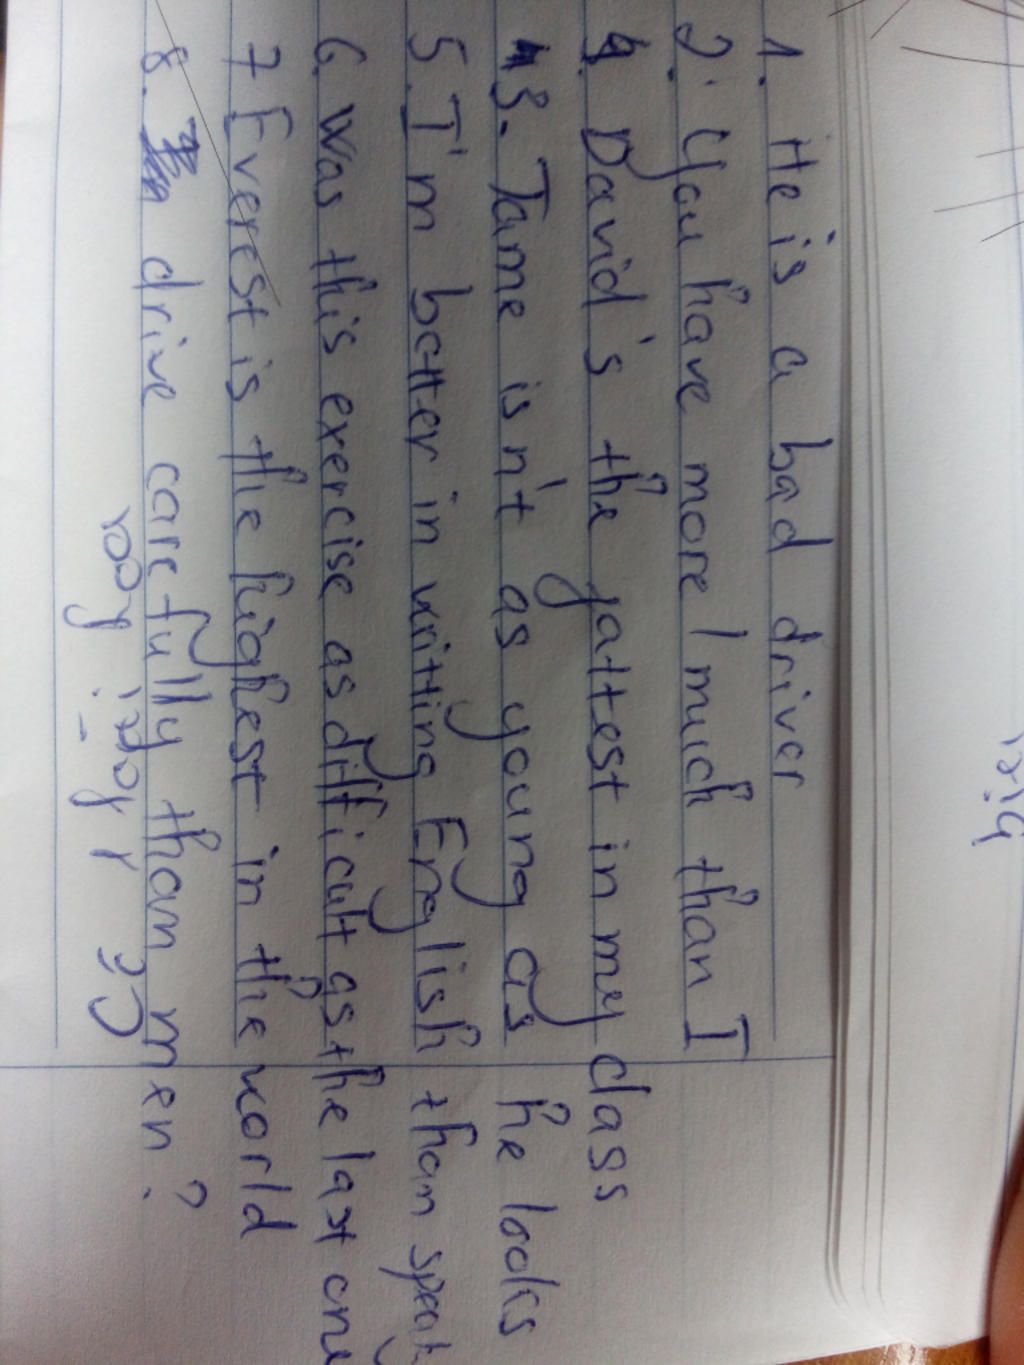 1. He is a bad driver
2. You have more / much than I
4. David's the fattest in my class
3. Jame isn't as young as he looks
5. I'm better in writting English than speak
6. Was this exercise as difficult as the last one
7 Everest is the highest in the world
8. drive carefully than men?